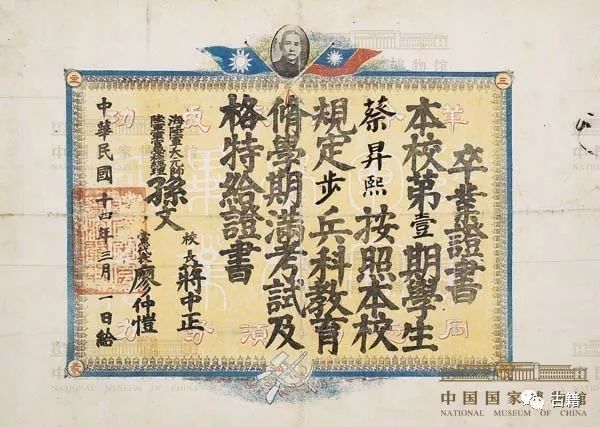 卒業證書
本校第壹期學生
蔡昇熙按照本校
規定步兵科教育
脩學期滿考試及
格特給證書
海陸軍大元帥
陸軍軍官學校總理
孫文
校長蔣中正
黨代表廖仲愷
中華民國十四年三月一日給
中国国家博物館
NATIONAL MUSEUM OF CHINA
古籍